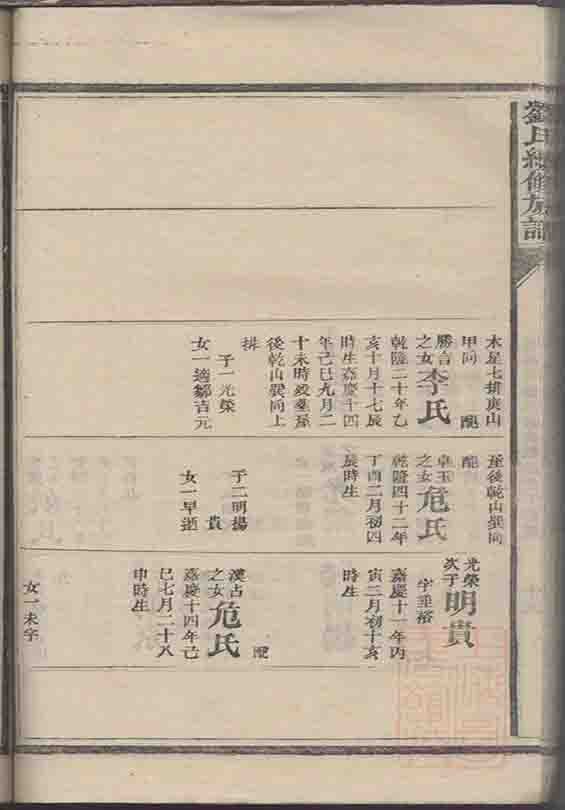 劉氏總修族譜
木星七排庚山
甲向　配
勝言
之女李氏
乾隆二十年乙
亥十月十七辰
時生嘉慶十四
年己巳九月二
十未時歿葬孫
後乾山巽向上
排
子一光榮
女一適鄒吉元
後乾山巽向
配
卓玉
之女危氏
乾隆四十二年
丁酉二月初四
辰時生
子二明揚
貴
女一早逝
光榮
次子明貴
字垂裕
嘉慶十一年丙
寅三月初十亥
時生
配
漢占
之女危氏
嘉慶十四年己
巳七月二十八
申時生
女一未字